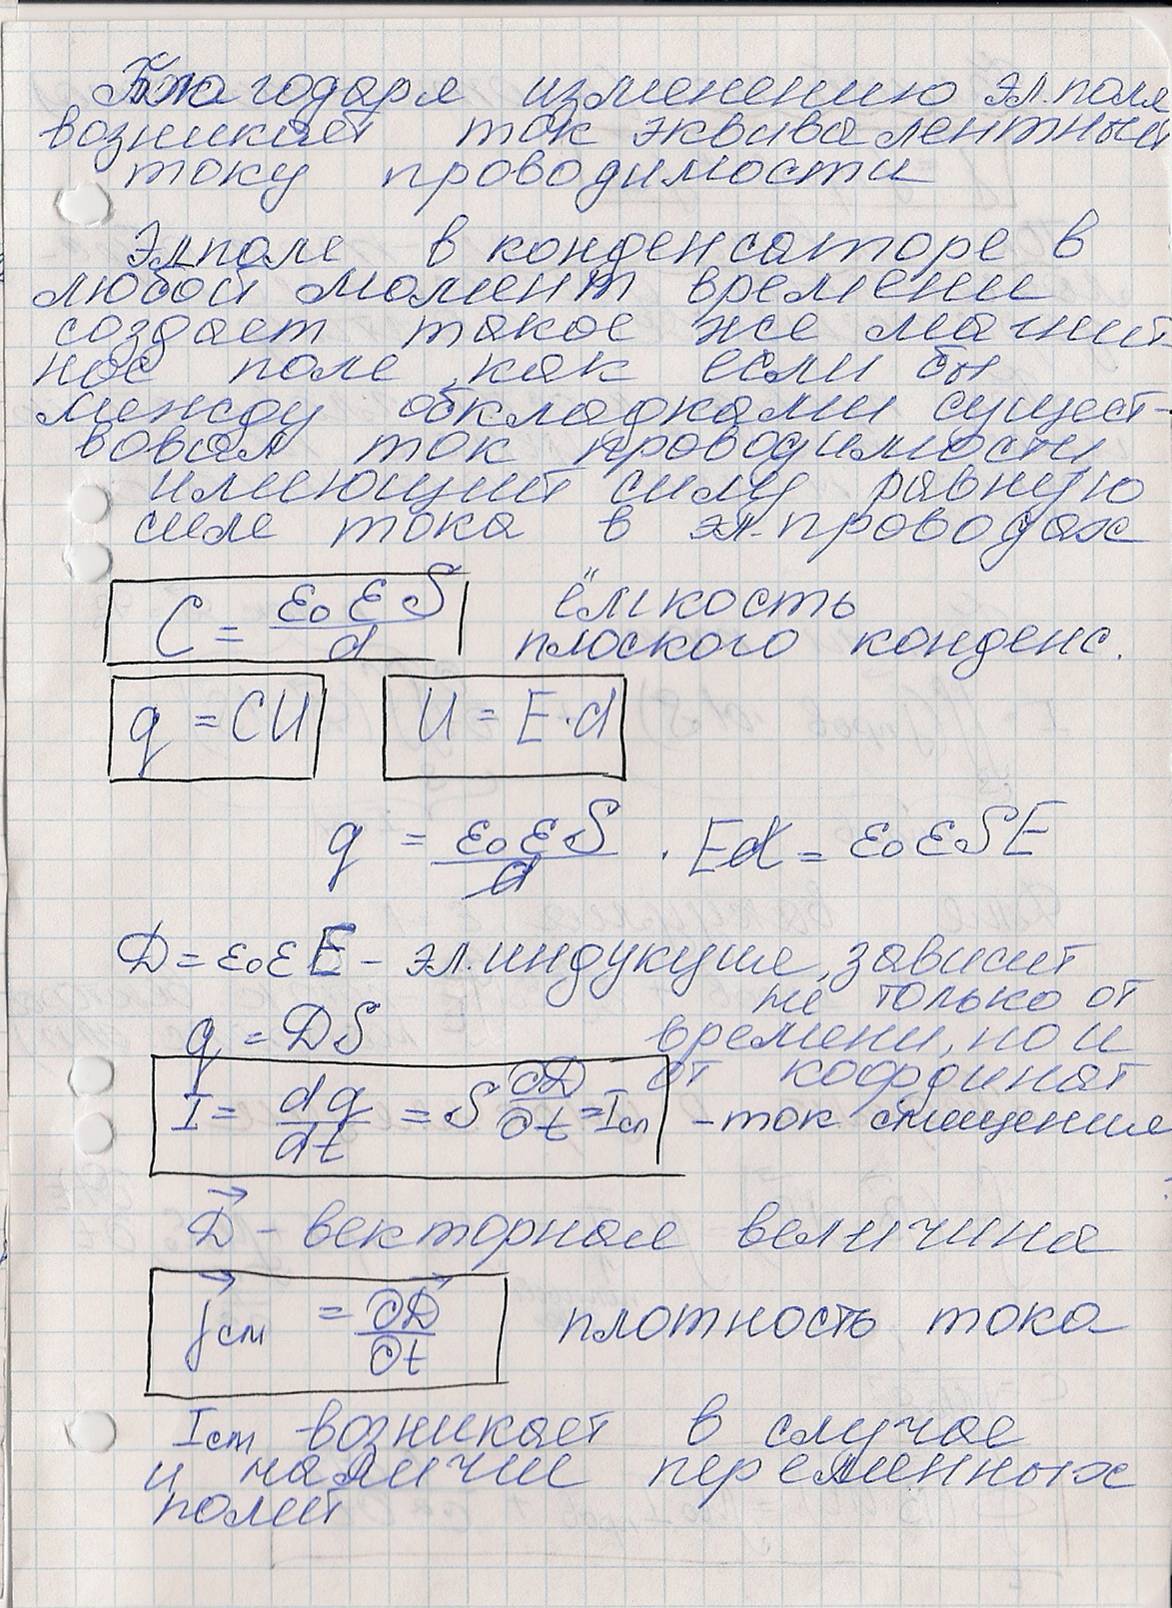 Благодаря изменению эл. поля
возникает ток эквивалентный
току проводимости
Эл поле в конденсаторе в
любой момент времени
создает такое же магнит-
ное поле, как если бы
между обкладками сущест-
вовал ток проводимости
имеющий силу равную
силе тока в эл. проводах
C = ε₀ εS / d ёмкость
плоского конденс.
q = CU U = E·d
q = ε₀ εS / d · Ed = ε₀ εSE
D = ε₀ ε E – эл. индукция, зависит
не только от
q = DS времени, но и
от координат
I = dq/dt = S ∂D/∂t = Iсм - ток смещения
D⃗ - векторная величина
j⃗см = ∂D⃗/∂t плотность тока
Iсм возникает в случае
и наличии переменных
полей